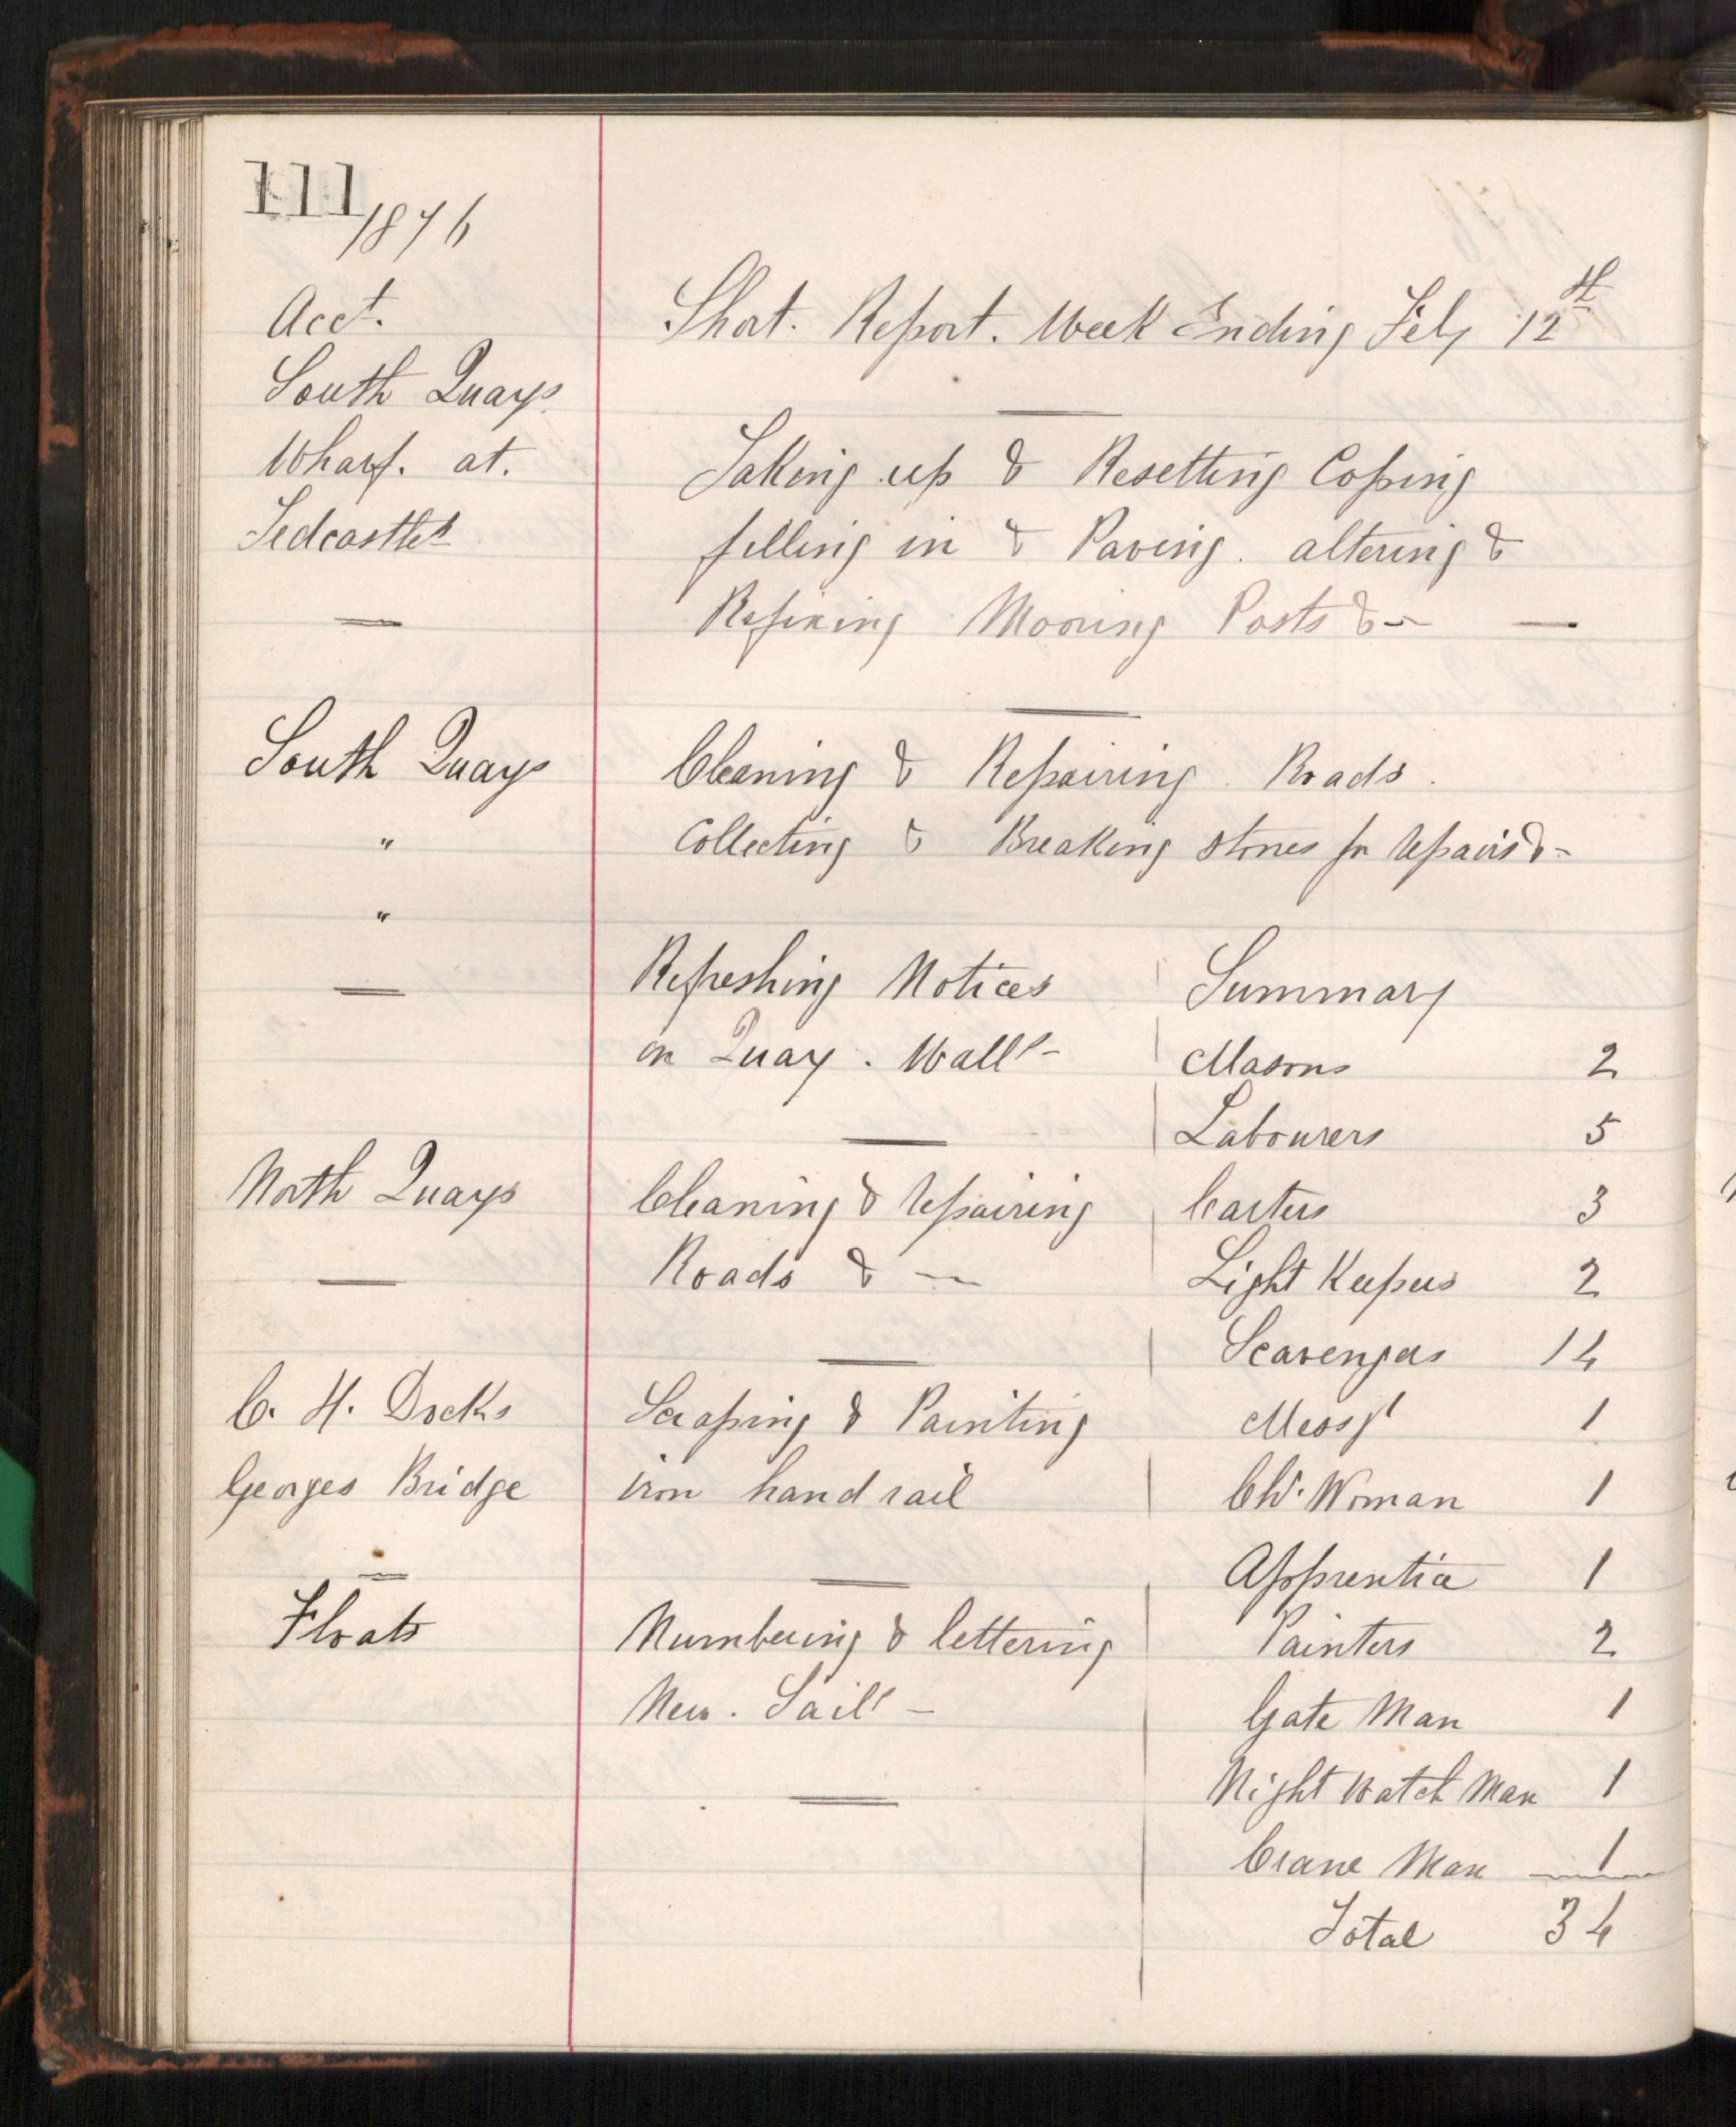 111
1876
Acct.
Short. Report. Week Ending Feby 12th
South Quays
Wharf. at.
Tedcastles
Taking up & Resetting Coping
filling in & Paving. altering &
Refixing Mooring Posts &-
South Quays
Cleaning & Repairing. Roads.
" Collecting & Breaking stones for repairs &-
"
Refreshing Notices
on Quay. Walls-
North Quays
Cleaning & repairing
Roads &-
C. H. Docks
Scraping & Painting
Georges Bridge
iron hand rail
Floats
Numbering & lettering
New. Sails-
Summary
Masons 2
Labourers 5
Carters 3
Light Keepers 2
Scavengers 14
Messr 1
Ch. Woman 1
Apprentice 1
Painters 2
Gate Man 1
Night Watch Man 1
Crane Man 1
Total 34